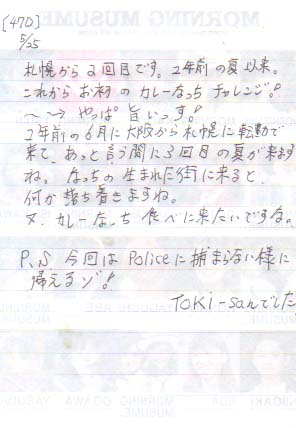 [470]
5/25
札幌から2回目です。2年前の夏以来。
これからお初のカレーなっちチャレンジ!!
〜〜→ やっぱ旨いっす!!
2年前の6月に大阪から札幌に転勤で
来て、あっと言う間に3回目の夏が来ます
ね。なっちの生まれた街に来ると、
何か落ち着きますね。
又、カレーなっち食べに来たいですな。
P,S 今回はPoliceに捕まらない様に
帰えるゾ!!
TOKI-sanでした
MORNING MUSUME